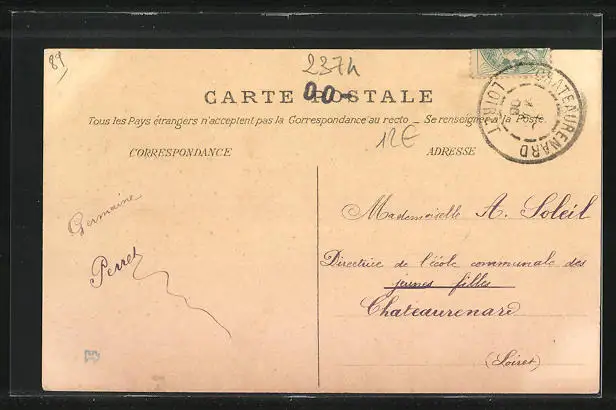 89
237h
00-
CARTE POSTALE
Tous les Pays étrangers n'acceptent pas la Correspondance au recto _ Se renseigner à la Poste
12€
CORRESPONDANCE
ADRESSE
CHATEAURENARD
LOIRET
Germaine
Perret
Mademoiselle A. Soleil
Directrice de l'école communale des
jeunes filles
Chateaurenard
(Loiret)